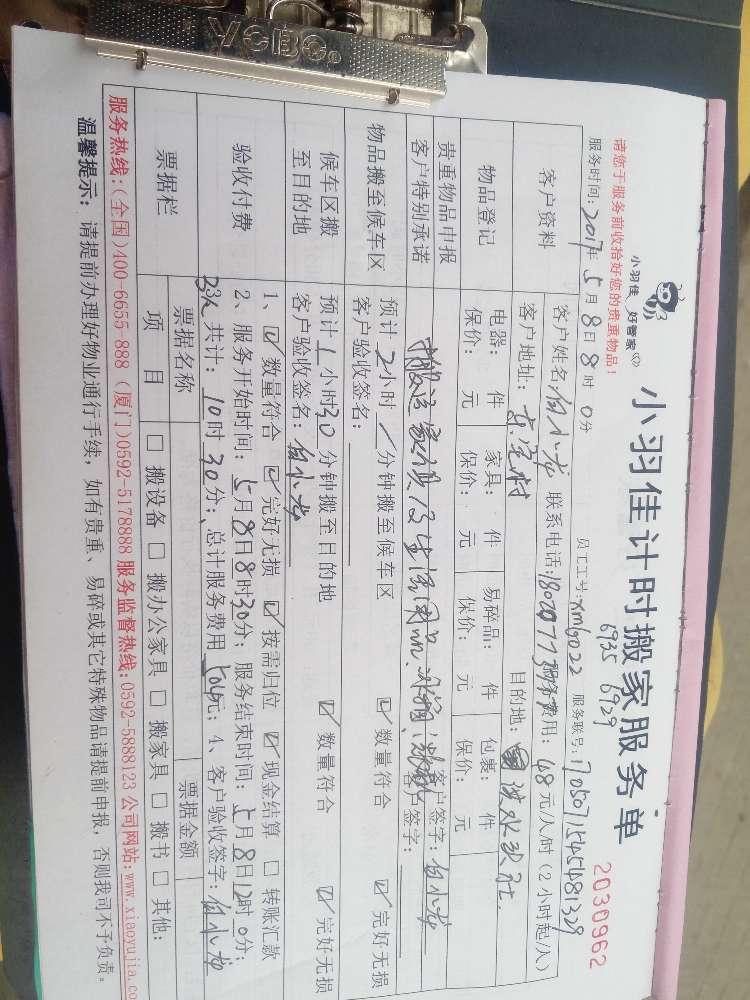 VCBC.
小羽佳 好管家
小羽佳计时搬家服务单
2030962
6935 6929
请您于服务前收拾好您的贵重物品!
员工工号:xm6022 服务联号:
服务时间:2017年5月8日8时0分
客户资料
客户姓名: 联系电话: 服务费用:48元/人/时(2小时起/人)
客户地址: 目的地:
物品登记
电器: 件 家具: 件 易碎品: 件 包裹: 件
保价: 元 保价: 元 保价: 元 保价: 元
贵重物品申报 客户签字:
客户特别承诺 客户签字:
物品搬至候车区
预计2小时/分钟搬至候车区 ☑数量符合 ☑完好无损
客户验收签名:
候车区搬至目的地
预计1小时30分钟搬至目的地 ☑数量符合 ☑完好无损
客户验收签名:
验收付费
1、☑数量符合 ☑完好无损 ☑按需归位 ☑现金结算 □转账汇款
2、服务开始时间:5月8日8时30分; 服务结束时间:5月8日12时0分;
共计:10时30分; 总计服务费用504元; 4、客户验收签字:
票据栏
票据名称 票据金额
项 目 □搬设备 □搬办公家具 □搬家具 □搬书 □其他:
服务热线:(全国)400-6655-888 (厦门)0592-5178888 服务监督热线:0592-5888123 公司网站:www.xiaoyujia.co
温馨提示: 请提前办理好物业通行手续,如有贵重、易碎或其它特殊物品请提前申报,否则我司不予负责。